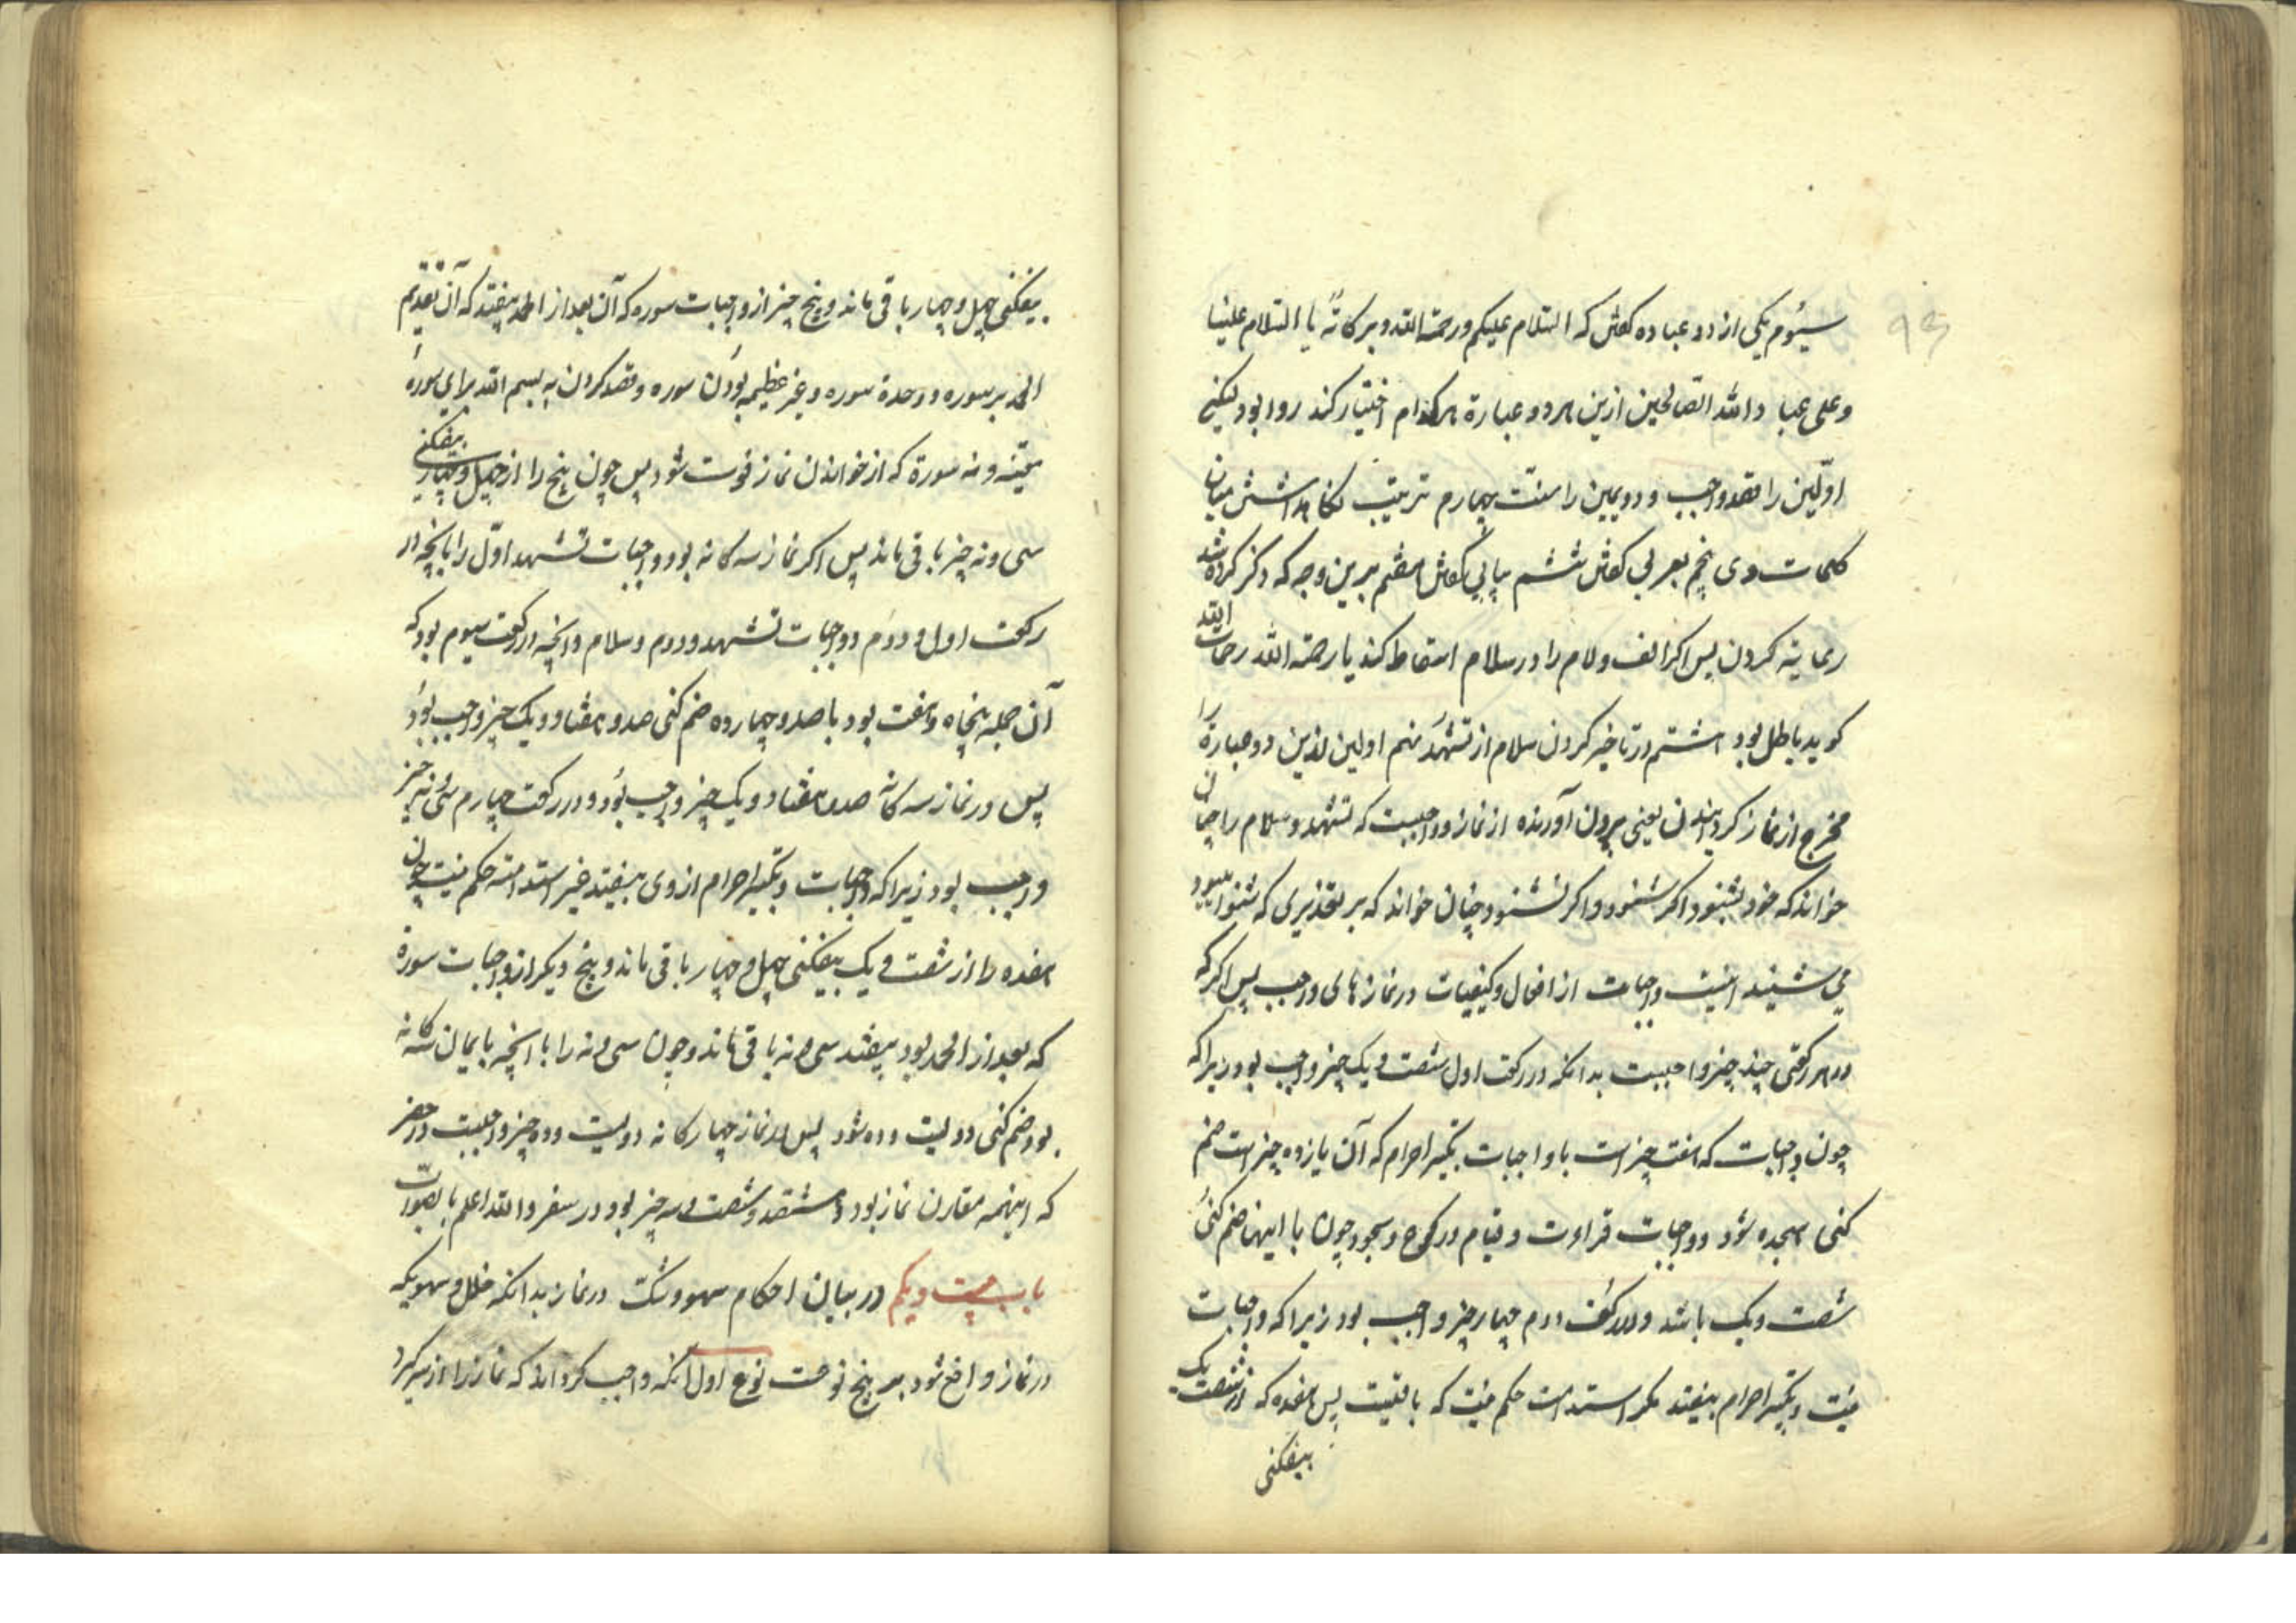 سیوم یکی از دو عباده کفتن که السلام علیکم ورحمة الله وبرکاته یا السلام علینا
وعلی عباد الله الصالحین ازین هر دو عبارة هرکدام اختیار کند روا بود لیکن
اولین را قصد واجب و دویمین را سنت چهارم ترتیب نکاهداشتن میان
کلمات وی پنجم بعربی کفتن ششم پیاپی کفتن هفتم برین وجه که ذکر کرده شد
رعایه کردن پس اکر الف ولام را در سلام اسقاط کند یا رحمة الله رحمات الله
کوید باطل بود هشتم در تاخیر کردن سلام از تشهد نهم اولین ازین دو عبارة را
مخرج از نماز کردانیدن یعنی بیرون آورنده از نماز و واجبست که تشهد وسلام را چنان
خواند که خود بشنود اکر شنود و اکر نشنود چنان خواند که بر تقدیری که شنوا بود
می شنید اینست واجبات از افعال وکیفیات در نمازهای واجب پس اکر که
در هر رکعتی چند چیز واجبست بدانکه در رکعت اول شصت و یک چیز واجب بود زیرا که
چون واجبات که هفت چیز است با واجبات تکبیر احرام که آن یازده چیز است ضم
کنی هجده شود و واجبات قراءت و قیام و رکوع و سجود چون با اینها ضم کنی
شصت ویک باشد و در رکعت دوم چهار چیز واجب بود زیرا که واجبات
نیت و تکبیر احرام بیفتد مکر استدامت حکم نیت که باقیست پس هفده که از شصت یک
بیفکنی
بیفکنی چهل و چهار باقی ماند و پنج چیز از واجبات سوره که آن بعد از الحمد بیفتد که آن تقدیم
الحمد بر سوره و وحدة سوره و غیر عظیمه بودن سوره و قصد کردن به بسم الله برای سوره
معینه و نه سورة که از خواندن نماز فوت شود پس چون پنج را از چهل و چهار بیفکنی
سی و نه چیز باقی ماند پس اکر نماز سه کانه بود و واجبات تشهد اول را بانچه در
رکعت اول و دوم و واجبات تشهد دوم و سلام و انچه در رکعت سیوم بود که
آن جمله پنجاه و هفت بود با صد و چهارده ضم کنی صد و هفتاد و یک چیز واجب بود
پس در نماز سه کانه صد و هفتاد و یک چیز واجب بود و در رکعت چهارم سی و نه چیز
واجب بود زیرا که واجبات و تکبیر احرام از وی بیفتد غیر استدامة حکم نیت چون
هفده را از شصت و یک بیفکنی چهل و چهار باقی ماند و پنج دیکر از واجبات سورة
که بعد از الحمد بود بیفتد سی و نه باقی ماند و چون سی و نه را با انچه با نماز سه کانه
بود ضم کنی دویست و ده شود پس در نماز چهار کانه دویست و ده چیز واجبست در حضر
که اینهمه مقارن نماز بود و هشتصد و شصت و سه چیز بود در سفر والله اعلم بالصواب
باب بیست و یکم در بیان احکام سهو و شک در نماز بدانکه خلل و سهویکه
در نماز واقع شود بر پنج نوعست نوع اول آنکه واجب کرداند که نماز را از سر کیرد